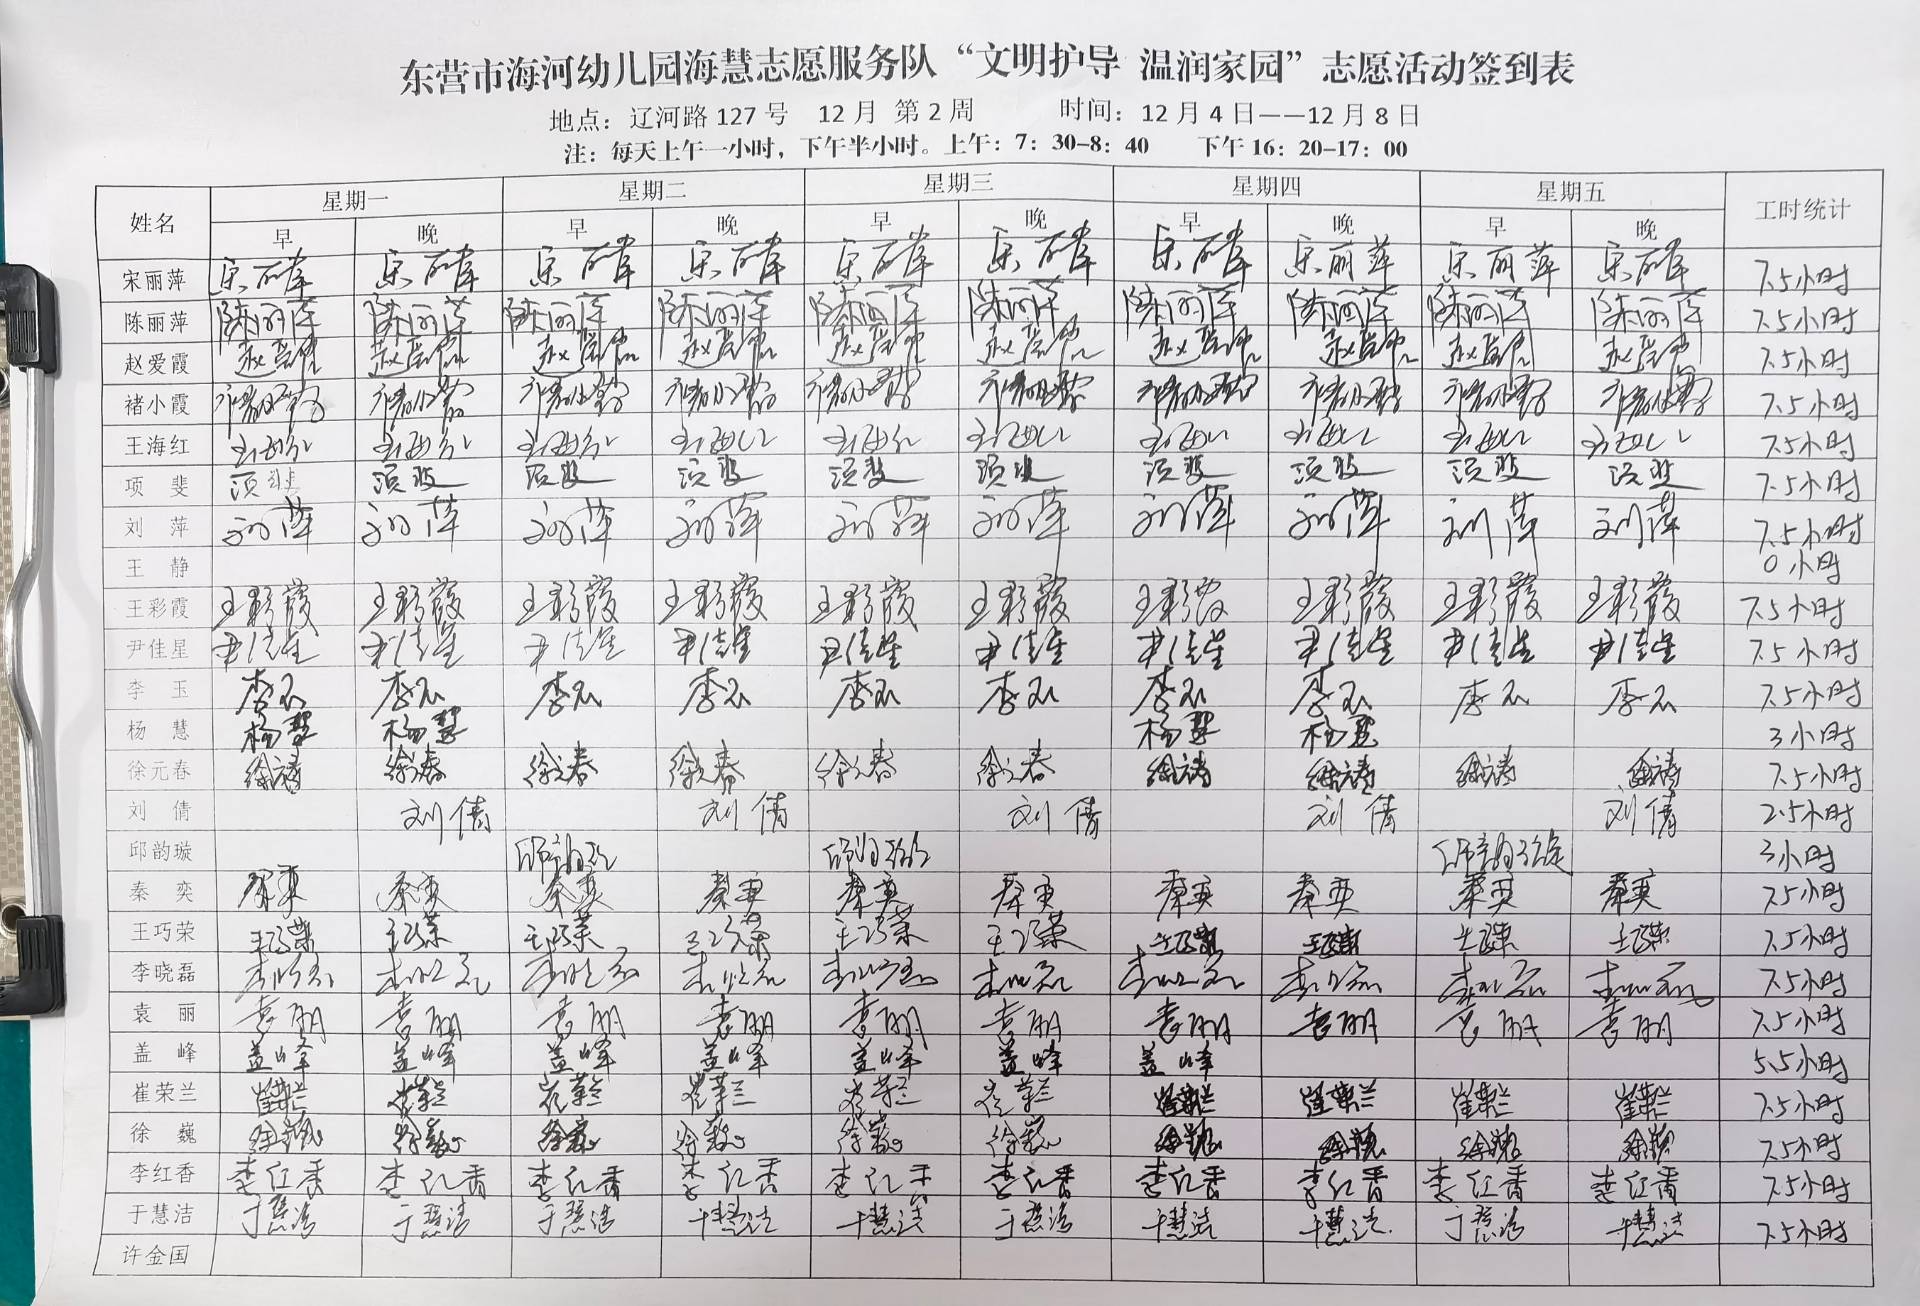 东营市海河幼儿园海慧志愿服务队“文明护导 温润家园”志愿活动签到表
地点：辽河路 127 号 12 月 第 2 周 时间：12 月 4 日——12 月 8 日
注：每天上午一小时，下午半小时。上午：7：30-8：40 下午 16：20-17：00
姓名 星期一 星期二 星期三 星期四 星期五 工时统计
早 晚 早 晚 早 晚 早 晚 早 晚
宋丽萍 宋丽萍 宋丽萍 宋丽萍 宋丽萍 宋丽萍 宋丽萍 宋丽萍 宋丽萍 宋丽萍 宋丽萍 7.5小时
陈丽萍 陈丽萍 陈丽萍 陈丽萍 陈丽萍 陈丽萍 陈丽萍 陈丽萍 陈丽萍 陈丽萍 陈丽萍 7.5小时
赵爱霞 赵爱霞 赵爱霞 赵爱霞 赵爱霞 赵爱霞 赵爱霞 赵爱霞 赵爱霞 赵爱霞 赵爱霞 7.5小时
褚小霞 褚小霞 褚小霞 褚小霞 褚小霞 褚小霞 褚小霞 褚小霞 褚小霞 褚小霞 褚小霞 7.5小时
王海红 王海红 王海红 王海红 王海红 王海红 王海红 王海红 王海红 王海红 王海红 7.5小时
项 斐 项斐 项斐 项斐 项斐 项斐 项斐 项斐 项斐 项斐 项斐 7.5小时
刘 萍 刘萍 刘萍 刘萍 刘萍 刘萍 刘萍 刘萍 刘萍 刘萍 刘萍 7.5小时
王 静 0小时
王彩霞 王彩霞 王彩霞 王彩霞 王彩霞 王彩霞 王彩霞 王彩霞 王彩霞 王彩霞 王彩霞 7.5小时
尹佳星 尹佳星 尹佳星 尹佳星 尹佳星 尹佳星 尹佳星 尹佳星 尹佳星 尹佳星 尹佳星 7.5小时
李 玉 李玉 李玉 李玉 李玉 李玉 李玉 李玉 李玉 李玉 李玉 7.5小时
杨 慧 杨慧 杨慧 杨慧 杨慧 3小时
徐元春 徐元春 徐元春 徐元春 徐元春 徐元春 徐元春 徐元春 徐元春 徐元春 徐元春 7.5小时
刘 倩 刘倩 刘倩 刘倩 刘倩 刘倩 2.5小时
邱韵璇 邱韵璇 邱韵璇 邱韵璇 3小时
秦 奕 秦奕 秦奕 秦奕 秦奕 秦奕 秦奕 秦奕 秦奕 秦奕 秦奕 7.5小时
王巧荣 王巧荣 王巧荣 王巧荣 王巧荣 王巧荣 王巧荣 王巧荣 王巧荣 王巧荣 王巧荣 7.5小时
李晓磊 李晓磊 李晓磊 李晓磊 李晓磊 李晓磊 李晓磊 李晓磊 李晓磊 李晓磊 李晓磊 7.5小时
袁 丽 袁丽 袁丽 袁丽 袁丽 袁丽 袁丽 袁丽 袁丽 袁丽 袁丽 7.5小时
盖 峰 盖峰 盖峰 盖峰 盖峰 盖峰 盖峰 盖峰 5.5小时
崔荣兰 崔荣兰 崔荣兰 崔荣兰 崔荣兰 崔荣兰 崔荣兰 崔荣兰 崔荣兰 崔荣兰 崔荣兰 7.5小时
徐 巍 徐巍 徐巍 徐巍 徐巍 徐巍 徐巍 徐巍 徐巍 徐巍 徐巍 7.5小时
李红香 李红香 李红香 李红香 李红香 李红香 李红香 李红香 李红香 李红香 李红香 7.5小时
于慧洁 于慧洁 于慧洁 于慧洁 于慧洁 于慧洁 于慧洁 于慧洁 于慧洁 于慧洁 于慧洁 7.5小时
许金国